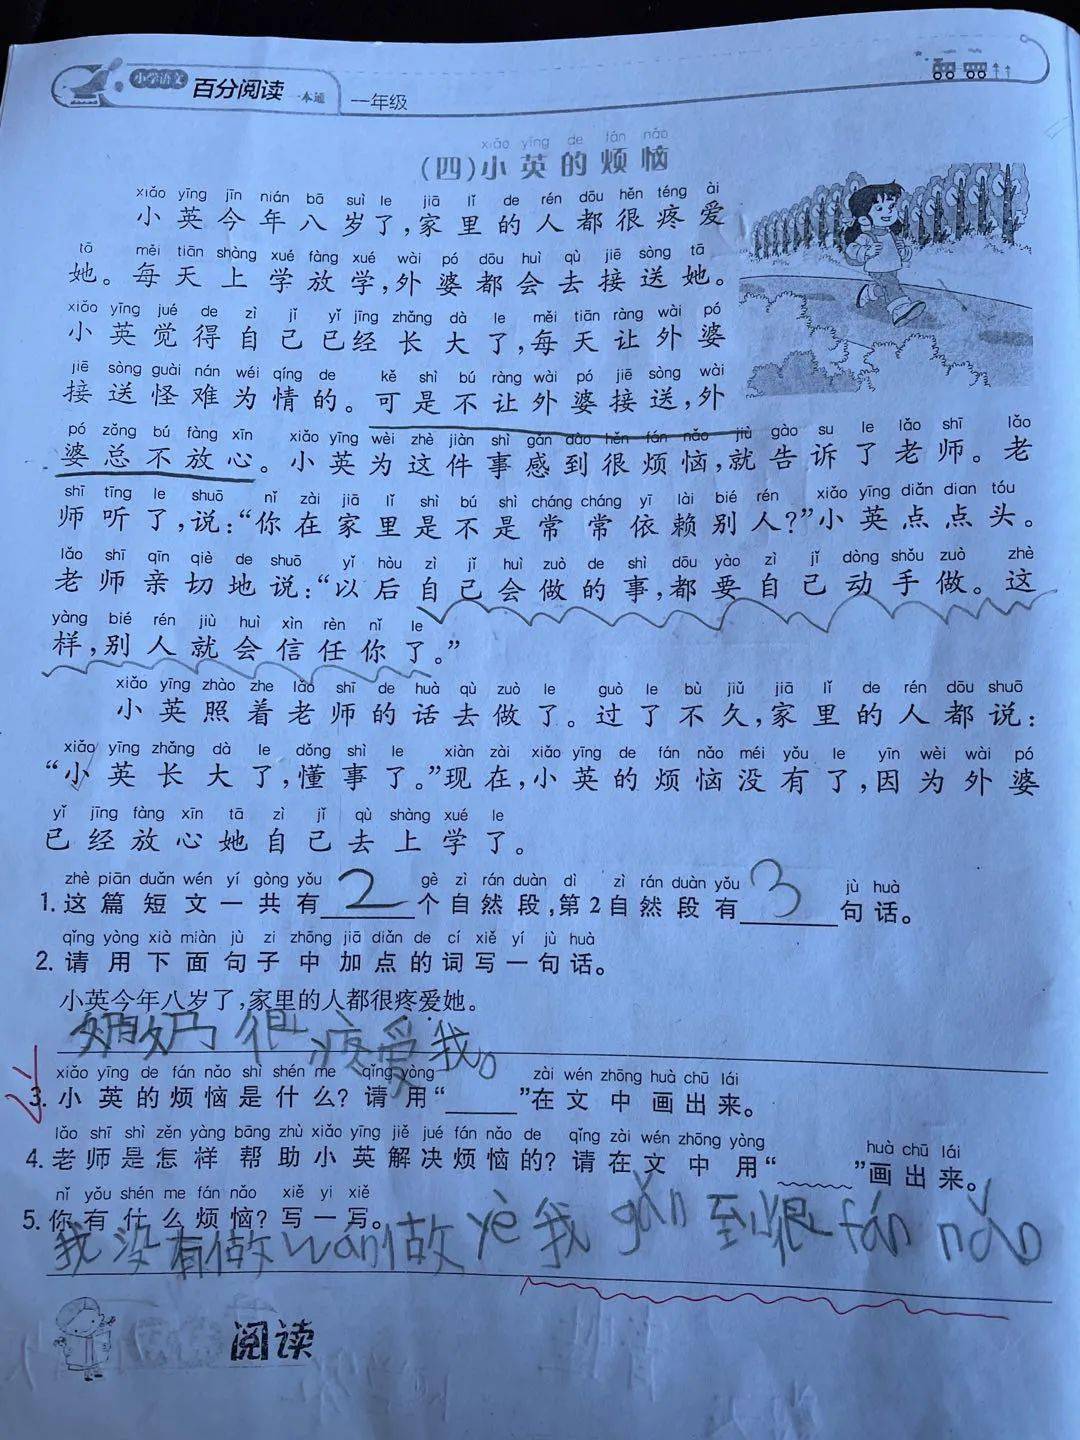 小学语文 百分阅读 一本通 一年级
xiǎo yīng de fán nǎo
(四)小英的烦恼
xiǎo yīng jīn nián bā suì le jiā lǐ de rén dōu hěn téng ài
小英今年八岁了,家里的人都很疼爱
tā měi tiān shàng xué fàng xué wài pó dōu huì qù jiē sòng tā
她。每天上学放学,外婆都会去接送她。
xiǎo yīng jué de zì jǐ yǐ jīng zhǎng dà le měi tiān ràng wài pó
小英觉得自己已经长大了,每天让外婆
jiē sòng guài nán wéi qíng de kě shì bú ràng wài pó jiē sòng wài
接送怪难为情的。可是不让外婆接送,外
pó zǒng bú fàng xīn xiǎo yīng wèi zhè jiàn shì gǎn dào hěn fán nǎo jiù gào su le lǎo shī lǎo
婆总不放心。小英为这件事感到很烦恼,就告诉了老师。老
shī tīng le shuō nǐ zài jiā lǐ shì bú shì cháng cháng yī lài bié rén xiǎo yīng diǎn dian tóu
师听了,说:“你在家里是不是常常依赖别人?”小英点点头。
lǎo shī qīn qiè de shuō yǐ hòu zì jǐ huì zuò de shì dōu yào zì jǐ dòng shǒu zuò zhè
老师亲切地说:“以后自己会做的事,都要自己动手做。这
yàng bié rén jiù huì xìn rèn nǐ le
样,别人就会信任你了。”
xiǎo yīng zhào zhe lǎo shī de huà qù zuò le guò le bù jiǔ jiā lǐ de rén dōu shuō
小英照着老师的话去做了。过了不久,家里的人都说:
xiǎo yīng zhǎng dà le dǒng shì le xiàn zài xiǎo yīng de fán nǎo méi yǒu le yīn wèi wài pó
“小英长大了,懂事了。”现在,小英的烦恼没有了,因为外婆
yǐ jīng fàng xīn tā zì jǐ qù shàng xué le
已经放心她自己去上学了。
zhè piān duǎn wén yí gòng yǒu gè zì rán duàn dì zì rán duàn yǒu jù huà
1.这篇短文一共有2个自然段,第2自然段有3句话。
qǐng yòng xià miàn jù zi zhōng jiā diǎn de cí xiě yí jù huà
2.请用下面句子中加点的词写一句话。
小英今年八岁了,家里的人都很疼爱她。
很疼爱我。
xiǎo yīng de fán nǎo shì shén me qǐng yòng zài wén zhōng huà chū lái
3.小英的烦恼是什么?请用“____”在文中画出来。
lǎo shī shì zěn yàng bāng zhù xiǎo yīng jiě jué fán nǎo de qǐng zài wén zhōng yòng huà chū lái
4.老师是怎样帮助小英解决烦恼的?请在文中用“____”画出来。
nǐ yǒu shén me fán nǎo xiě yi xiě
5.你有什么烦恼?写一写。
我没有做wán做yè我gǎn到很fán nǎo
阅读